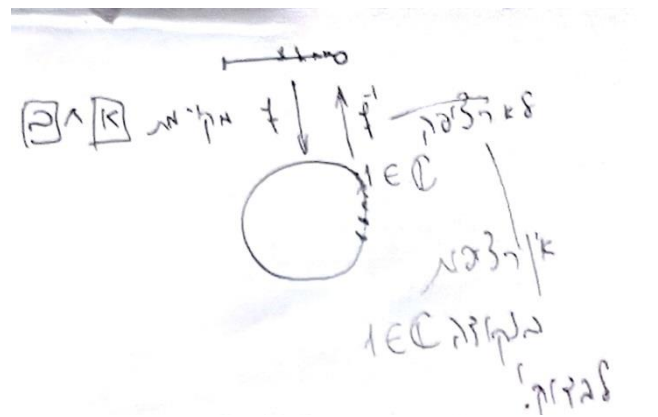 f מקיימת א ∧ ב
f⁻¹
לא רציפה
1 ∈ ℂ
אין רציפות
בנקודה 1 ∈ ℂ
לבדוק!